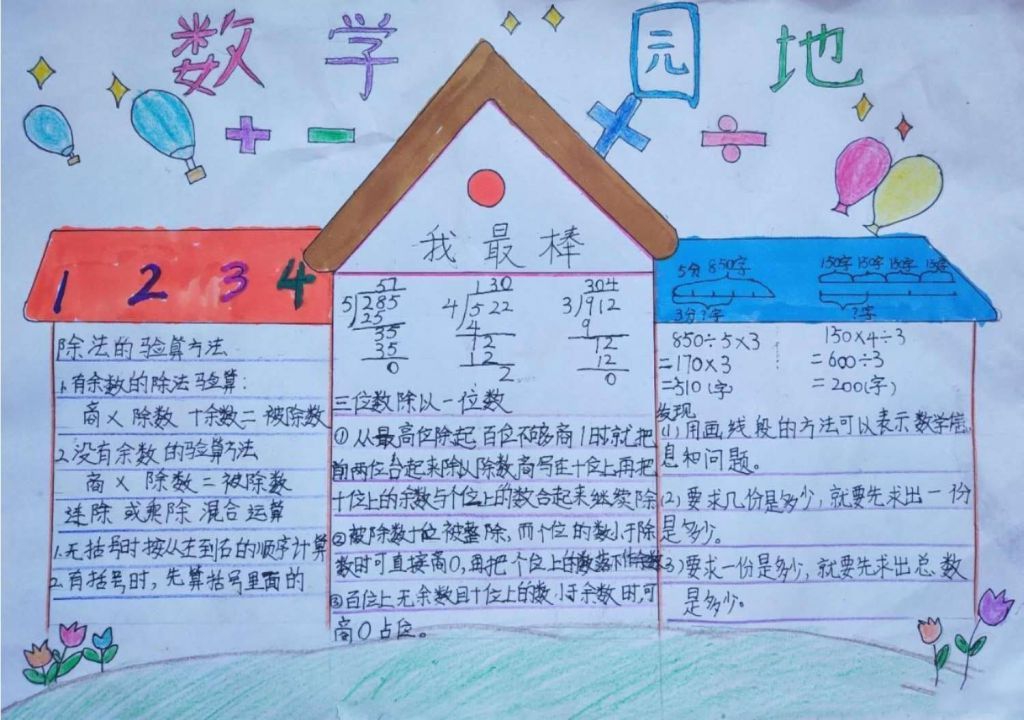 数学园地
+ − × ÷
我最棒
1 2 3 4
除法的验算方法
1.有余数的除法验算:
商×除数+余数=被除数
2.没有余数的验算方法
商×除数=被除数
连除或乘除混合运算
1.无括号时按从左到右的顺序计算
2.有括号时,先算括号里面的
57
5 285
25
35
35
0
130
4 522
4
12
12
2
304
3 912
9
12
12
0
三位数除以一位数
①从最高位除起百位不够商1时就把
前两位合起来除以除数商写在十位上再把
十位上的余数与个位上的数合起来继续除
②被除数十位被整除,而个位的数小于除
数时可直接商0,再把个位上的数落下作余数
③百位上无余数且十位上的数小于余数时,可
商0占位。
5分850字
3分?字
150字 150字 150字 150字
?字
850÷5×3
=170×3
=510(字)
150×4÷3
=600÷3
=200(字)
发现
(1)用画线段的方法可以表示数学信
息和问题。
(2)要求几份是多少,就要先求出一份
是多少。
(3)要求一份是多少,就要先求出总数
是多少。